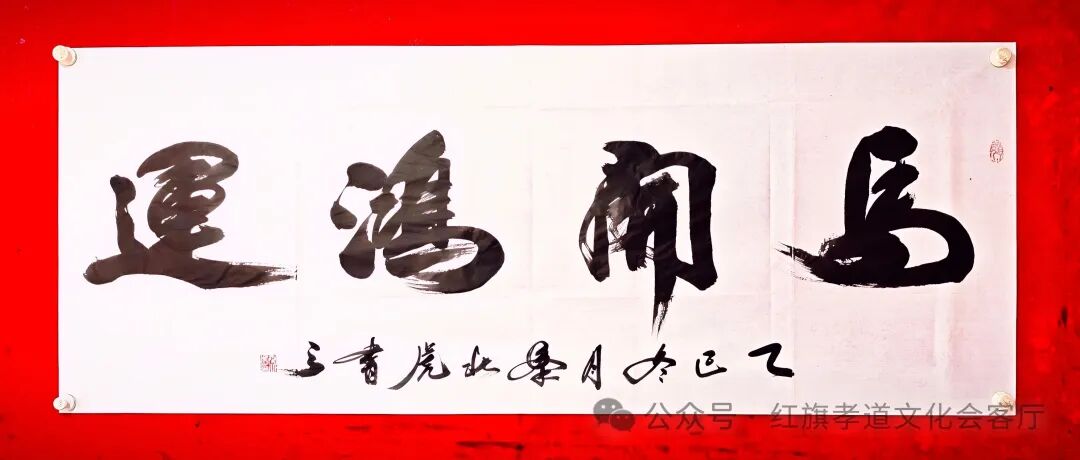 馬開鴻運
乙巳冬月秦北虎書
公众号 · 红旗孝道文化会客厅